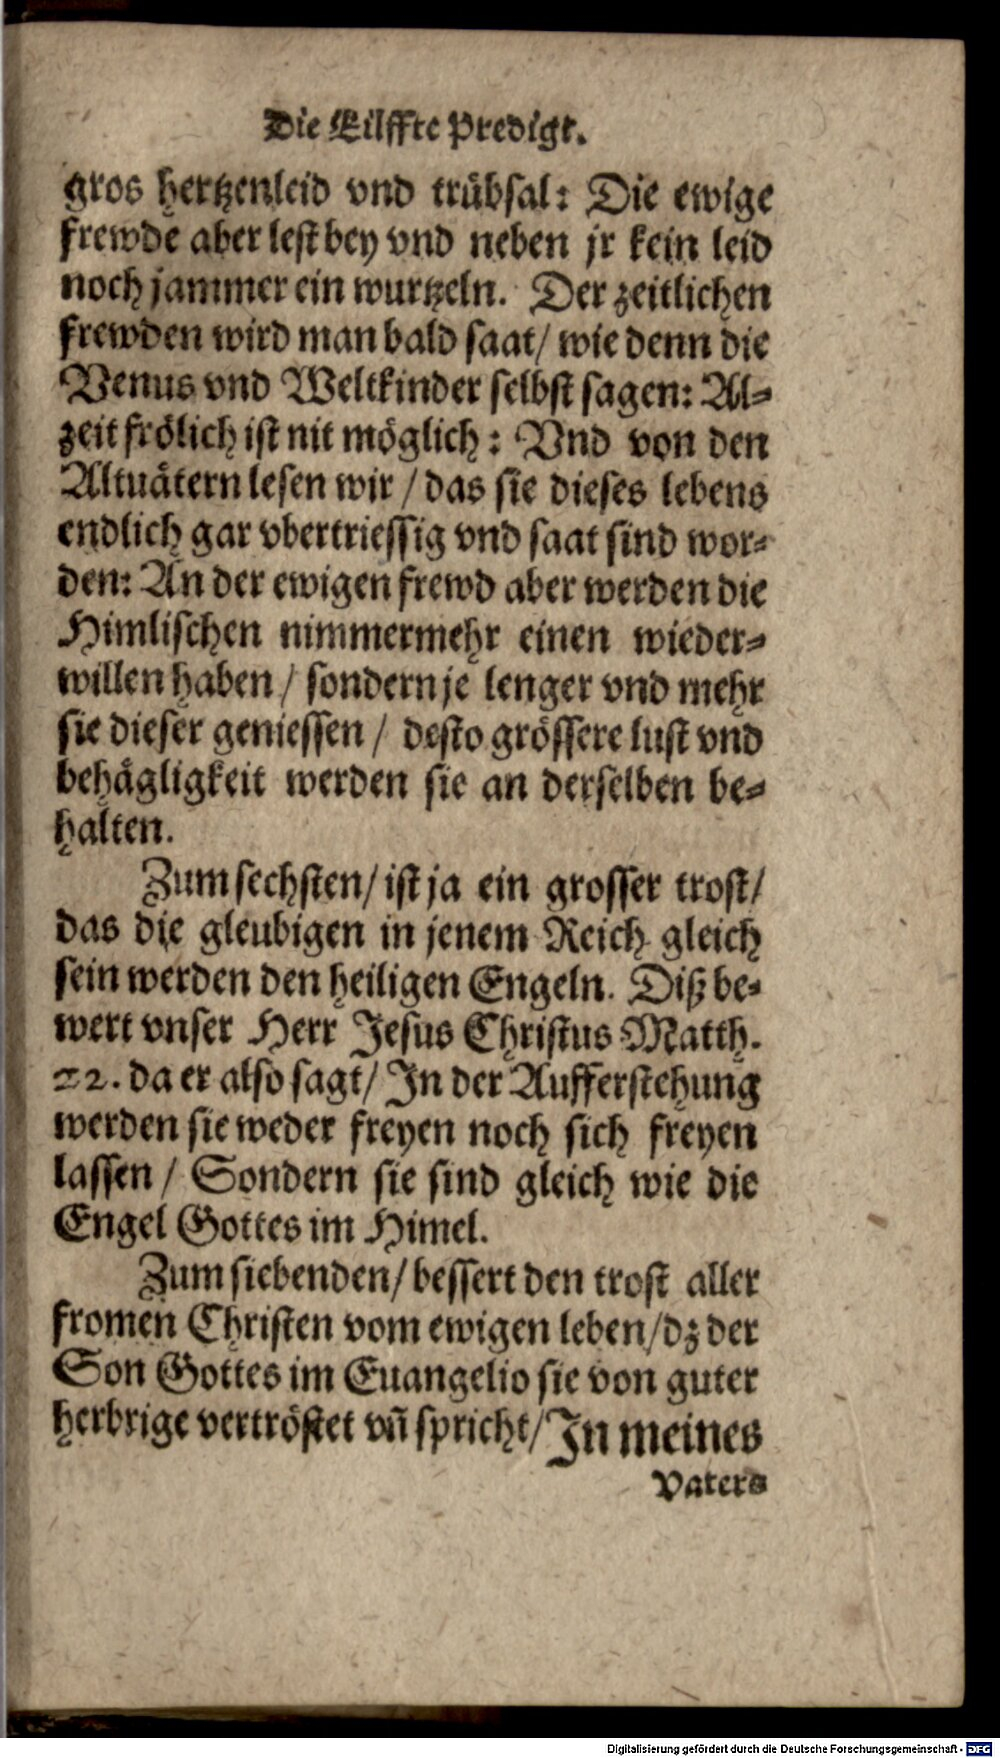 Die Eilffte Predigt.
gros hertzenleid vnd trübsal: Die ewige
frewde aber lest bey vnd neben jr kein leid
noch jammer ein wurtzeln. Der zeitlichen
frewden wird man bald saat/ wie denn die
Venus vnd Weltkinder selbst sagen: Al-
zeit frölich ist nit möglich: Vnd von den
Altuätern lesen wir / das sie dieses lebens
endlich gar vbertriessig vnd saat sind wor-
den: An der ewigen frewd aber werden die
Himlischen nimmermehr einen wieder-
willen haben / sondern je lenger vnd mehr
sie dieser geniessen / desto grössere lust vnd
behägligkeit werden sie an derselben be-
halten.
Zum sechsten/ ist ja ein grosser trost/
das die gleubigen in jenem Reich gleich
sein werden den heiligen Engeln. Diß be-
wert vnser Herr Jesus Christus Matth.
22. da er also sagt/ In der Aufferstehung
werden sie weder freyen noch sich freyen
lassen / Sondern sie sind gleich wie die
Engel Gottes im Himel.
Zum siebenden/ bessert den trost aller
fromen Christen vom ewigen leben/ dz der
Son Gottes im Euangelio sie von guter
herbrige vertröstet vñ spricht/ In meines
Vaters
Digitalisierung gefördert durch die Deutsche Forschungsgemeinschaft - DFG